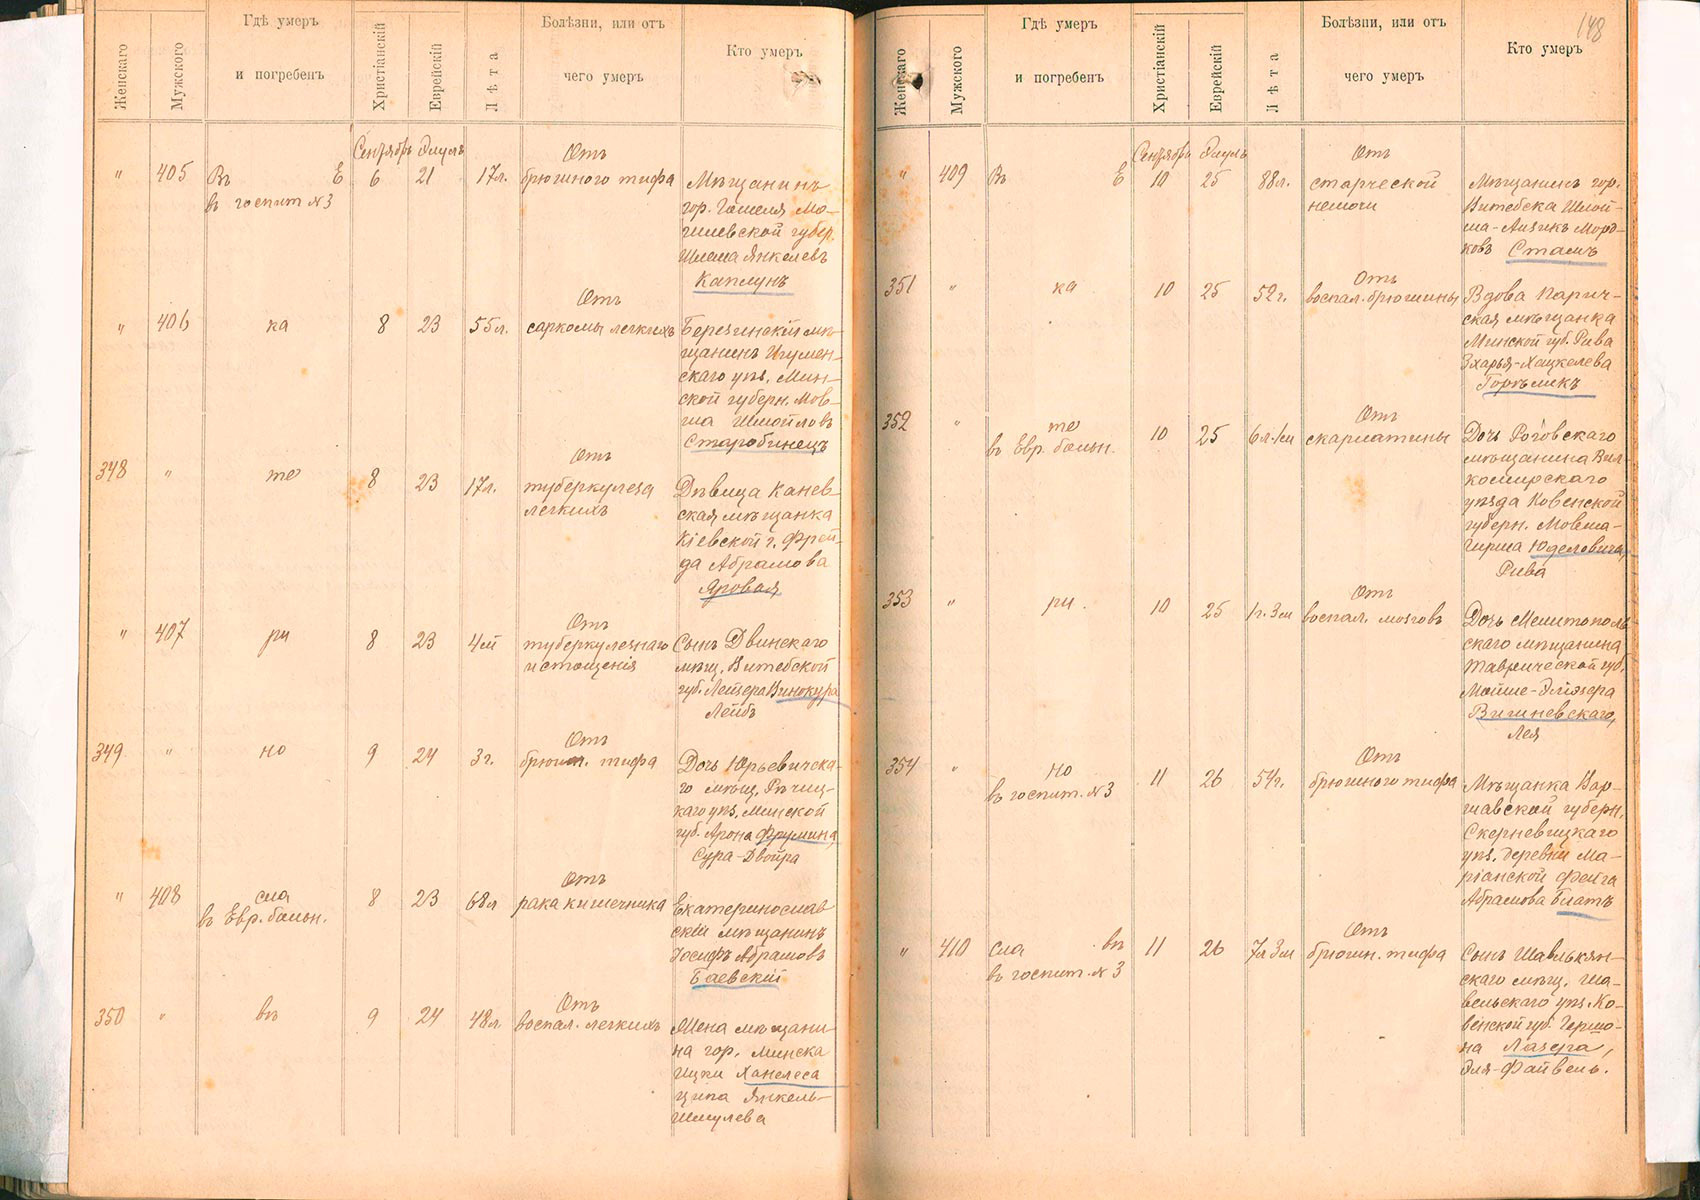 Женскаго
Мужского
Гдѣ умеръ
и погребенъ
Христіанскій
Еврейскій
Лѣта
Болѣзни, или отъ
чего умеръ
Кто умеръ
Сентябрь Элулъ
" 405 Въ Е 6 21 17л. Отъ
брюшного тифа
въ госпит №3
Мѣщанинъ
гор. Гомеля Мо-
гилевской губер.
Шлема Янкелевъ
Каплунъ
" 406 ка 8 23 55л. Отъ
саркомы легкихъ
Березинскій мѣ-
щанинъ Игумен-
скаго уѣз. Мин-
ской губерн. Мов-
ша Шмойловъ
Старобинецъ
348 " то 8 23 17л. Отъ
туберкулеза
легкихъ
Дѣвица Канев-
ская мѣщанка
Кіевской г. Фрей-
да Абрамова
Яровая
" 407 ри 8 23 4м Отъ
туберкулезнаго
истощенія
Сынъ Двинскаго
мѣщ. Витебской
губ. Лейзера Винокура
Лейбъ
349 " но 9 24 3г. Отъ
брюшн. тифа
Дочь Юрьевичска-
го мѣщ. Рѣчиц-
каго уѣз. Минской
губ. Арона Фрумина,
Сура-Двойра
" 408 сла 8 23 68л Отъ
рака кишечника
въ Евр. больн.
Екатеринослав
скій мѣщанинъ
Іосифъ Абрамовъ
Баевскій
350 " въ 9 24 48л. Отъ
воспал. легкихъ
Жена мѣщани-
на гор. Минска
Ицки Ханелеса
Ципа Янкель-
Шмулева
148
Женскаго
Мужского
Гдѣ умеръ
и погребенъ
Христіанскій
Еврейскій
Лѣта
Болѣзни, или отъ
чего умеръ
Кто умеръ
Сентябрь Элулъ
" 409 Въ Е 10 25 88л. Отъ
старческой
немочи
Мѣщанинъ гор.
Витебска Шлой-
ма-Айзикъ Морд-
ковъ Стамъ
351 " ка 10 25 52г. Отъ
воспал. брюшины
Вдова Парич-
ская мѣщанка
Минской губ. Рива
Зхарья-Хацкелева
Горѣликъ
352 " то 10 25 6л.1м Отъ
скарлатины
въ Евр. больн.
Дочь Роговскаго
мѣщанина Вил-
комирскаго
уѣзда Ковенской
губерн. Мовша-
Гирша Юделовича,
Рива
353 " ри. 10 25 1г.3м Отъ
воспал. мозговъ
Дочь Мелитополь
скаго мѣщанина
Таврической губ.
Мойше-Эліэзера
Вишневскаго,
Лея
354 " но 11 26 54г. Отъ
брюшного тифа
въ госпит. №3
Мѣщанка Вар-
шавской губерн.
Скерневицкаго
уѣз. деревни Ма-
ріанской Фейга
Абрамова Блатъ
" 410 сла въ 11 26 7л 3м Отъ
брюшн. тифа
въ госпит. №3
Сынъ Шавлькян-
скаго мѣщ. Ша-
вельскаго уѣз. Ко-
венской губ. Гершо-
на Лазера,
Эля-Файвель.